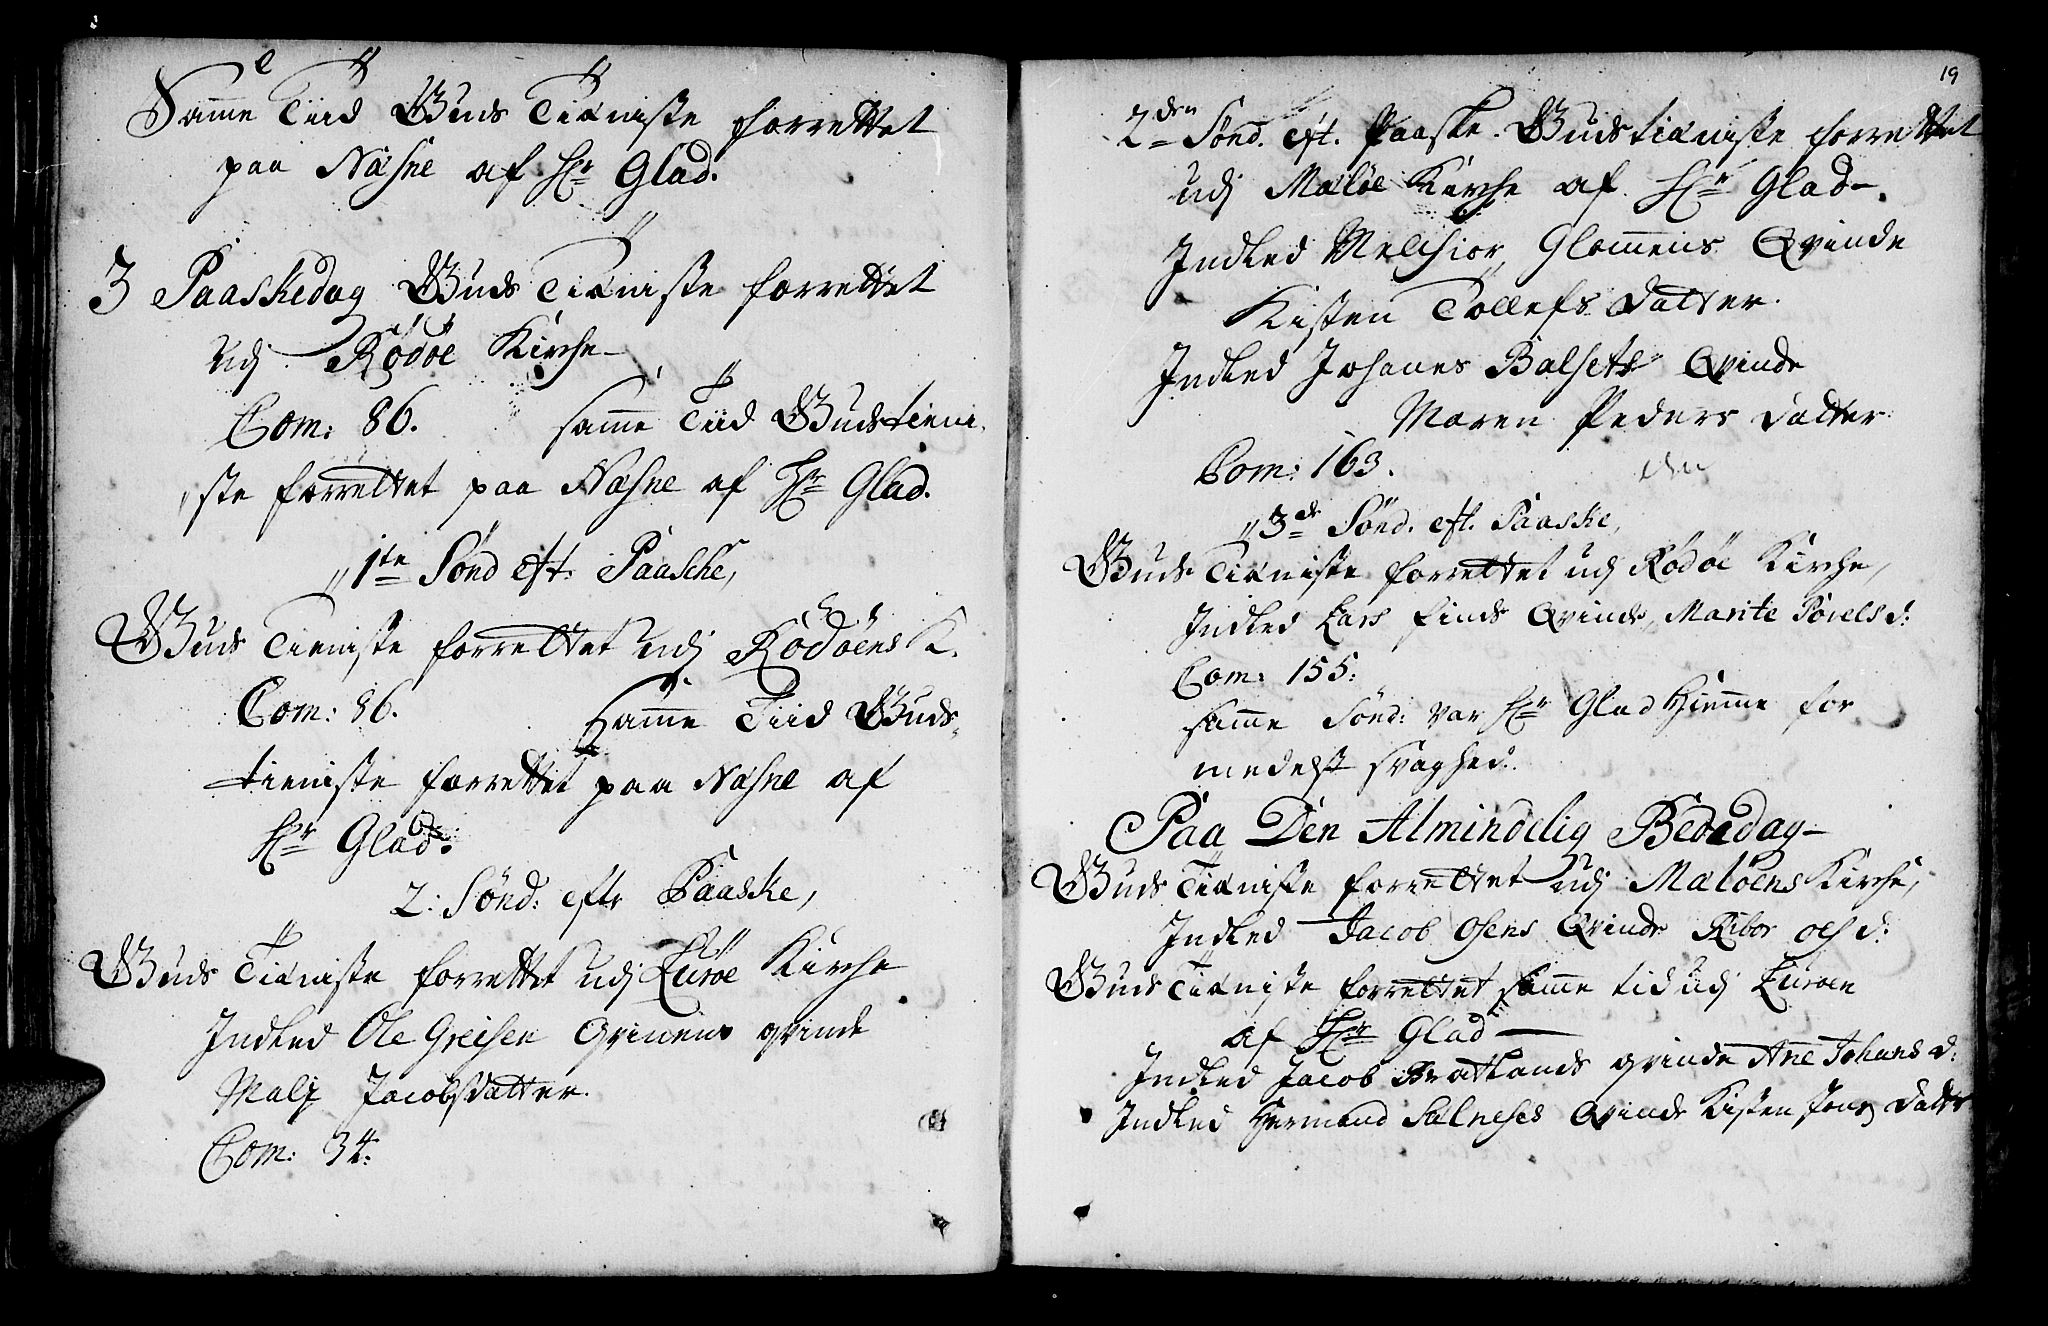 Samme Tiid Guds Tieniste forrettet
paa Næsne af Hr Glad.
3 Paaskedag Guds Tieniste forrettet
udj Rödöe Kirche
Com: 86. samme Tiid Gudstieni,
ste forrettet paa Næsne af Hr Glad.
1te Sönd eft: Paasche,
Guds Tieniste forrettet udj Rödöens K.
Com: 86. Samme Tiid Guds-
tieniste forrettet paa Næsne af
Hr Glad:
2: Sönd: efter Paaske,
Guds Tieniste forrettet udj Luröe Kirche
Indled Ole Greisen qvinde
Jacobsdatter.
Com: 34:
19
2den Sönd. eft. Paaske. Gudstieniste forrettet
udj Melöe Kirche af Hr Glad.
Indled Melchior Glommens Qvinde
Kisten Tollefs Datter.
Indled Johanes Balsets Qvinde
Maren Peders Datter
Com: 163.
3de Sönd. eft. Paaske,
Guds Tieniste forrettet udj Rödöe Kirche,
Indled Lars Qvinde, Marite d:
Com: 155:
samme Sönd: var Hr Glad Hiemme for
medelst svaghed:
Paa Den Almindelig Bededag
Guds Tieniste forrettet udj Melöens Kirche,
Indled Jacob Osens Qvinde d:
Guds Tieniste forrettet samme tid udj Luröen
af Hr Glad
Indled Jacob Bratlands qvinde Ane Johans d:
Indled Hermand Qvinde Kisten Datter